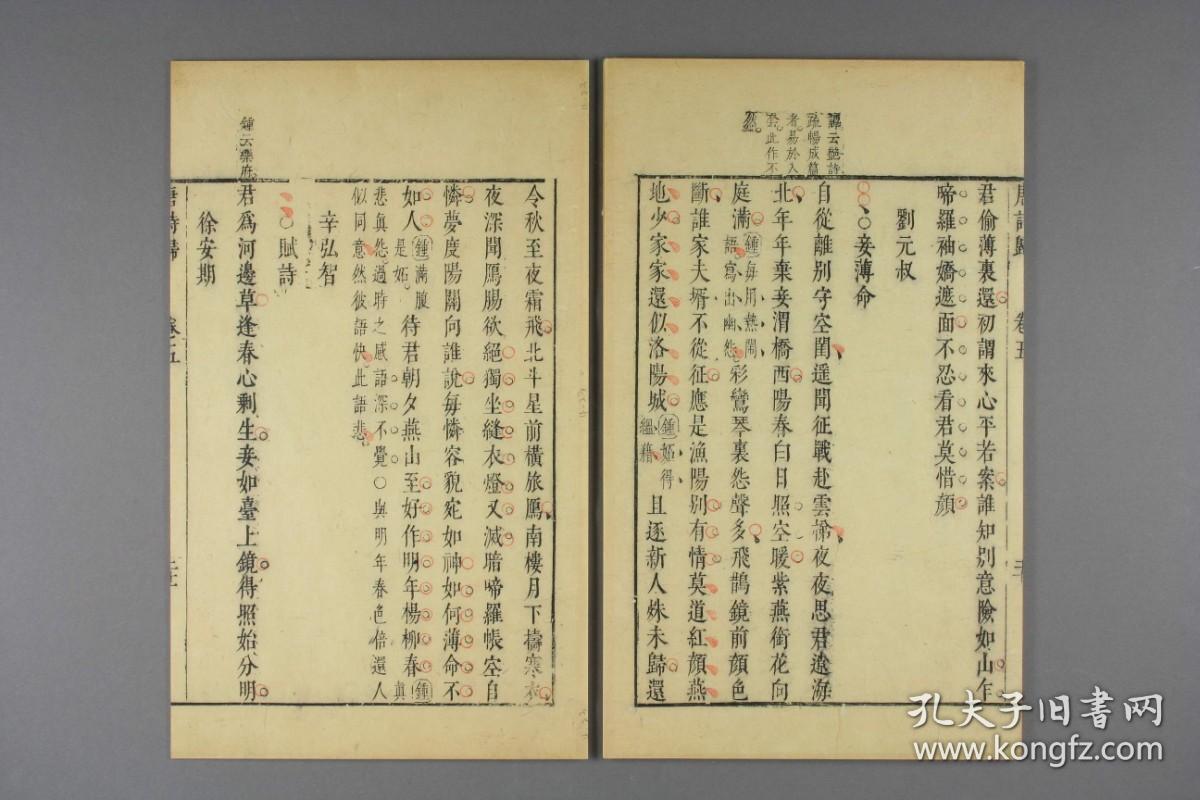 唐詩歸
卷五
君偷薄裏還初謂來心平若案誰知別意險如山乍
啼羅袖嬌遮面不忍看君莫惜顔
劉元叔
○妾薄命
譚云艷詩
疏暢成篇
者易於入
套此作不
然
自從離別守空閨遥聞征戰赴雲梯夜夜思君遼海
北年年棄妾渭橋西陽春白日照空暖紫燕銜花向
庭滿鍾每用熱鬧語寫出幽怨彩鸞琴裏怨聲多飛鵲鏡前顔色
斷誰家夫壻不從征應是漁陽別有情莫道紅顔燕
地少家家還似洛陽城鍾妬得縕藉且逐新人姝未歸還
令秋至夜霜飛北斗星前橫旅鴈南樓月下擣寒衣
夜深聞鴈腸欲絕獨坐縫衣燈又滅暗啼羅帳空自
憐夢度陽關向誰說每憐容貌宛如神如何薄命不
如人鍾滿腹是妬待君朝夕燕山至好作明年楊柳春鍾真
悲真怨過時之感語深不覺○與明年春色倍還人
似同意然彼語快此語悲
辛弘智
○賦詩
鍾云樂府
君爲河邊草逢春心剩生妾如臺上鏡得照始分明
徐安期
唐詩歸
卷之五
孔夫子旧書网
www.kongfz.com